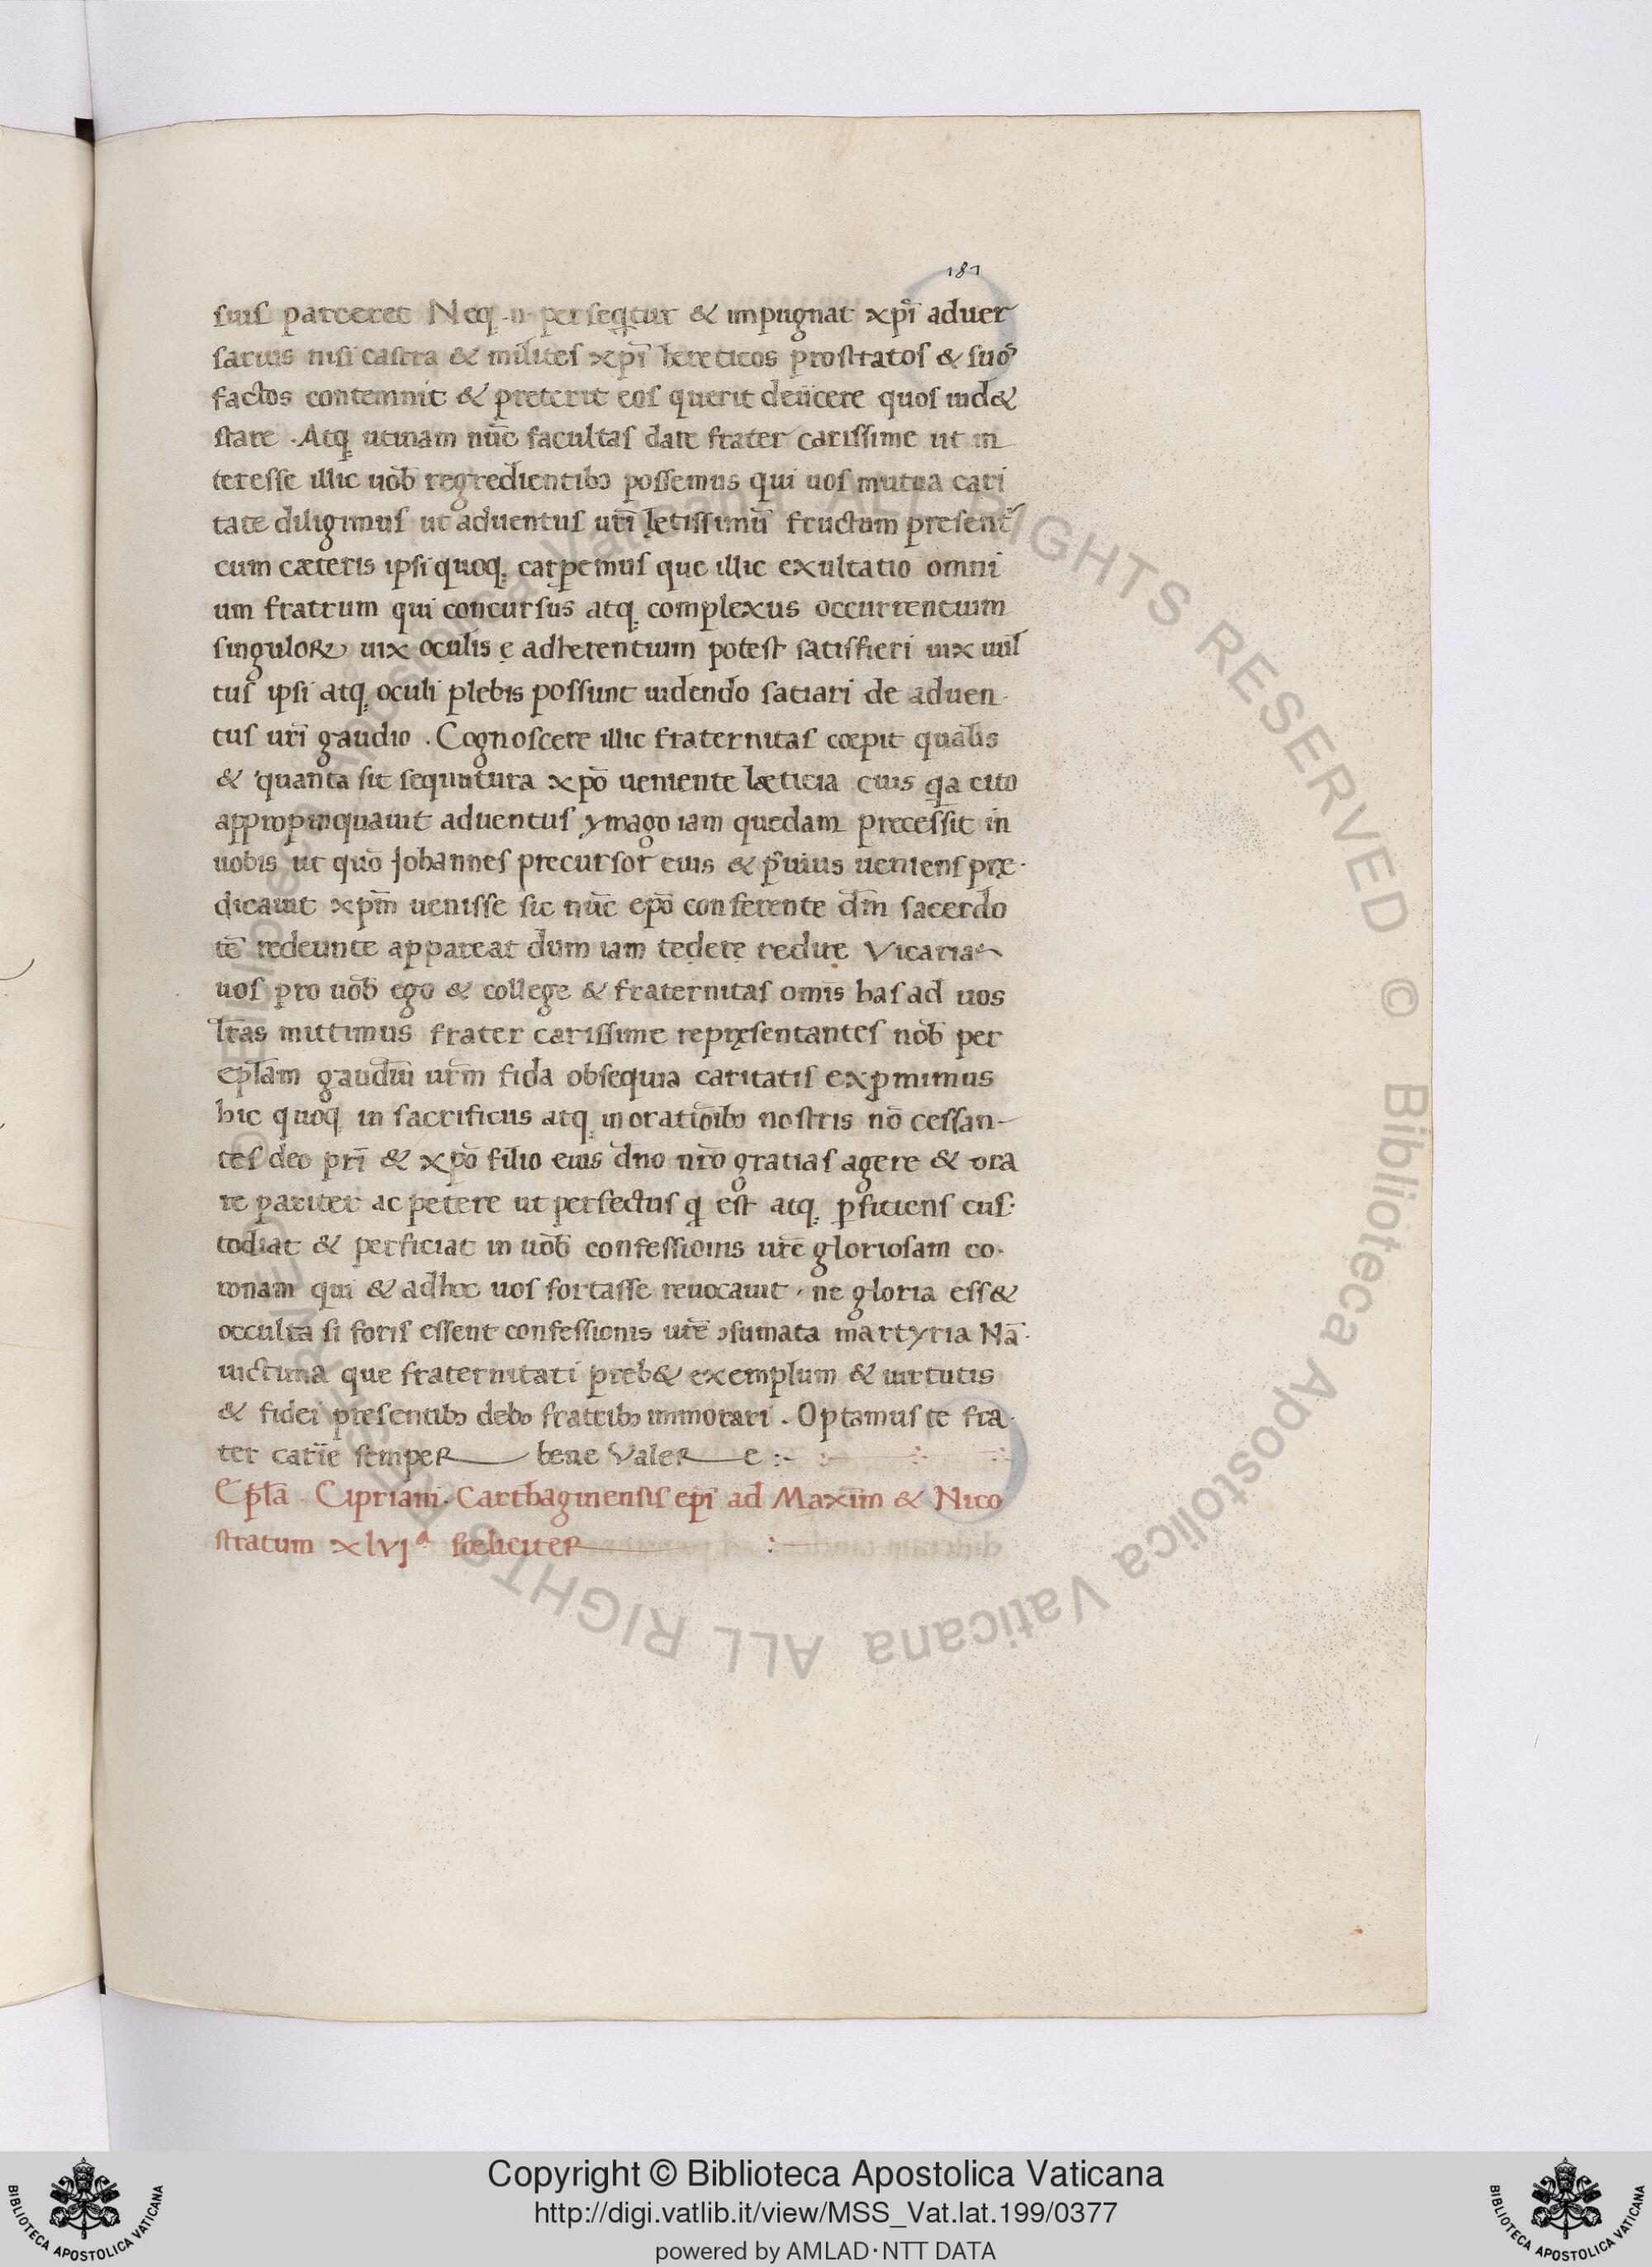 181
suis parceret Neq. n perseq̄tur & impugnat xp̄i aduer
sarius nisi castra & milites xp̄i hereticos prostratos & suos
factos contemnit & preterit eos querit deiicere quos uid&
stare . Atq̨ utinam nūc facultas dare frater carissime ut in
teresse illic uob̄ regredientibꝫ possemus qui uos mutua cari
tate diligimus ut aduentus ur̄i lętissimū fructum present
cum cæteris ipsi quoq. carpemus que illic exultatio omni
um fratrum qui concursus atq. complexus occurrentium
singuloꝝ uix oculis ę adherentium potest satisfieri uix uul
tus ipsi atq. oculi plebis possunt uidendo satiari de aduen-
tus ur̄i gaudio . Cognoscere illic fraternitas cœpit qualis
& quanta sit sequutura xp̄o ueniente læticia cuius q̄a cito
appropinquauit aduentus ymago iam quedam precessit in
uobis ut quō Johannes precursor eius & p̄uius ueniens prę-
dicauit xp̄m uenisse sic nūc ep̄o conferente dm̄ sacerdo
tē redeunte appareat dum iam tedere redire Vicarias
uos pro uob̄ ego & college & fraternitas omīs has ad uos
lr̄as mittimus frater carissime repręsentantes nob̄ per
ep̄lam gaudiū ur̄m fida obsequia caritatis exp̄mimus
hic quoq in sacrificiis atq. in oratiōibꝫ nostris nō cessan-
tes deo pr̄i & xp̄o filio eius dn̄o nr̄o gratias agere & ora
re pariter ac petere ut perfectus q̄ est atq. ꝑficiens cus-
todiat & perficiat in uob̄ confessionis ur̄e gloriosam co-
ronam qui & adhoc uos fortasse reuocauit . ne gloria ess&
occulta si foris essent confessionis ur̄e ↄsumata martyria Nā-
uictima que fraternitati preb& exemplum & uirtutis
& fidei presentibꝫ debꝫ fratribꝫ immorari . Optamus te fra-
ter car̄ie sempeR bene ValeRe :~
Ep̄la Cipriani . Carthaginensis ep̄i ad Maxim̄ & Nico
stratum xlvjª fœliciteR :
Copyright © Biblioteca Apostolica Vaticana
http://digi.vatlib.it/view/MSS_Vat.lat.199/0377
powered by AMLAD·NTT DATA
BIBLIOTECA APOSTOLICA VATICANA
BIBLIOTECA APOSTOLICA VATICANA
© Biblioteca Apostolica Vaticana ALL RIGHTS RESERVED